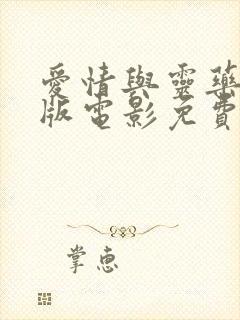 愛情與靈藥
版電影免費
掌惠